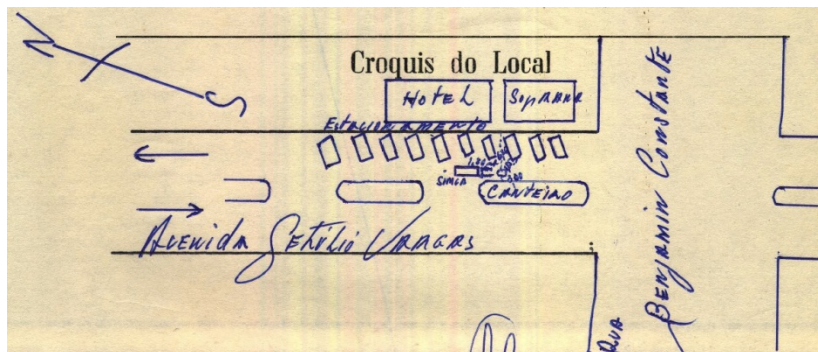 N
S
Croquis do Local
HOTEL
SOPRANA
ESTACIONAMENTO
SIMCA
CANTEIRO
AVENIDA GETÚLIO VARGAS
RUA
BENJAMIN CONSTANTE